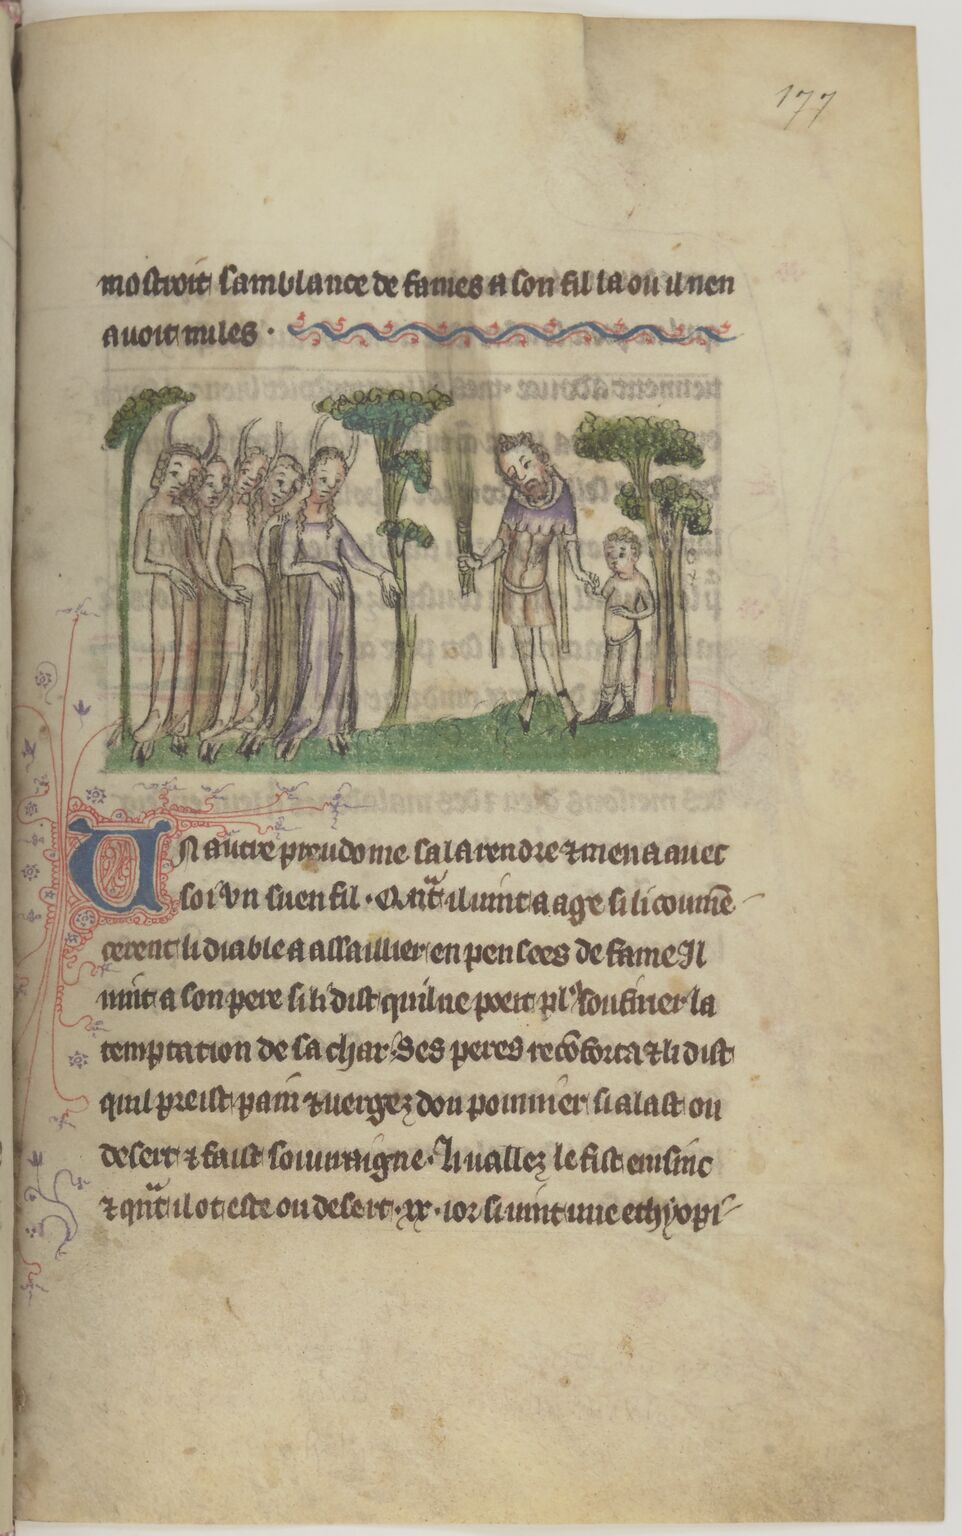 177
mostroit samblance de fames a son fil la ou il nen
auoit nules ·
Un autre preudome sala rendre ⁊ mena auec
soi vn suen fil · Qnt il uint a age si li coumē
cerent li diable a assaillier en pensees de fame Il
uint a son pere si li dist quil ne poeit pl' soufrier la
temptacion de sa char · Ses peres recōforta ⁊ li dist
quil preist pain ⁊ uergez dou poumier si alast ou
desert ⁊ faist soiuuraigne · Li uallez le fist einsinc
⁊ qnt il ot este ou desert · xx · ior si uint une ethyopi